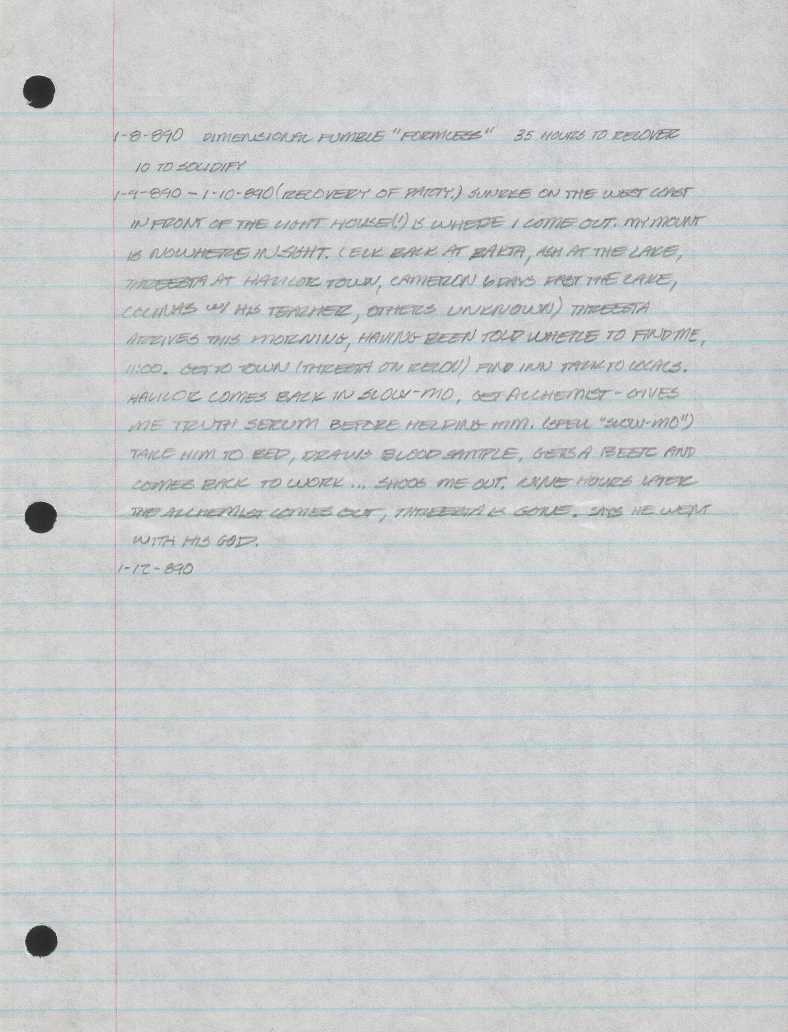 1-8-890 DIMENSIONAL FUMBLE "FORMLESS" 35 HOURS TO RECOVER
10 TO SOLIDIFY
1-9-890 - 1-10-890 (RECOVERY OF PARTY.) SUNRISE ON THE WEST COAST
IN FRONT OF THE LIGHT HOUSE(!) IS WHERE I COME OUT. MY MOUNT
IS NOWHERE IN SIGHT. (ELK BACK AT BAKTA, ASH AT THE LAKE,
THREESTA AT HALILOR TOWN, CAMERON 6 DAYS PAST THE LAKE,
COLINAS W/ HIS TEACHER, OTHERS UNKNOWN) THREESTA
ARRIVES THIS MORNING, HAVING BEEN TOLD WHERE TO FIND ME,
11:00. GET TO TOWN (THREESTA ON RELOV) FIND INN TALK TO LOCALS.
HALILOR COMES BACK IN SLOW-MO, GET ALCHEMIST - GIVES
ME TRUTH SERUM BEFORE HELPING HIM. (SPELL "SLOW-MO")
TAKE HIM TO BED, DRAWS BLOOD SAMPLE, GETS A BEER AND
COMES BACK TO WORK... SHOOS ME OUT. NINE HOURS LATER
THE ALCHEMIST COMES OUT, THREESTA IS GONE. SAYS HE WENT
WITH HIS GOD.
1-12-890